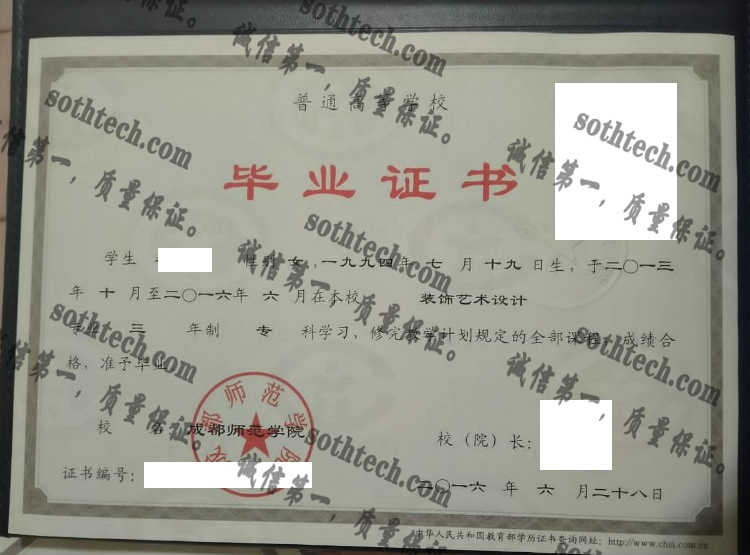 普通高等学校
毕业证书
学生 性别 女 ,一九九四年 七 月 十九 日生，于二〇一三
年 十 月至二〇一六年 六 月在本校 装饰艺术设计
专业 三 年制 专 科学习，修完教学计划规定的全部课程，成绩合
格，准予毕业
校 名 成都师范学院
校（院）长：
证书编号：
二〇一六 年 六 月二十八日
中华人民共和国教育部学历证书查询网址：http://www.chsi.com.cn
成都师范学院
sothtech.com
诚信第一，质量保证。
sothtech.com
诚信第一，质量保证。
sothtech.com
诚信第一，质量保证。
sothtech.com
诚信第一，质量保证。
sothtech.com
诚信第一，质量保证。
sothtech.com
诚信第一，质量保证。
sothtech.com
诚信第一，质量保证。
sothtech.com